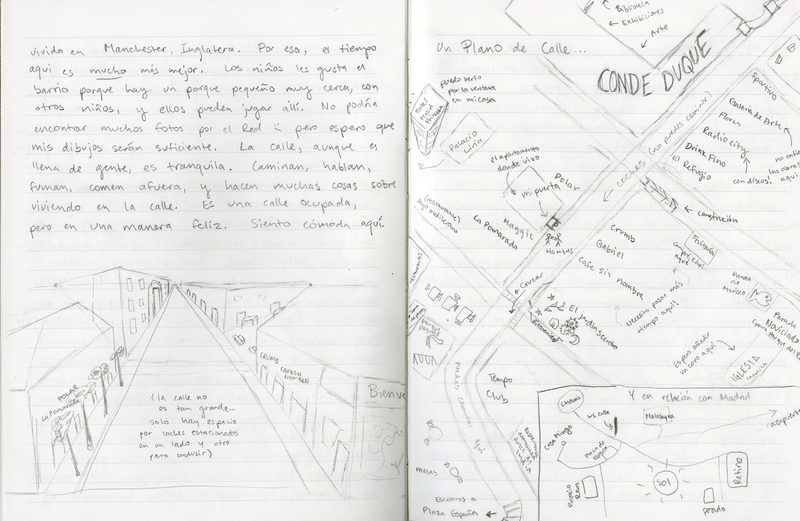 vivido en Manchester, Inglatera. Por eso, el tiempo
aquí es mucho más mejor. Los niños les gusta el
barrio porque hay un porque pequeño muy cerca, con
otros niños, y ellos pueden jugar allí. No podría
encontar muchos fotos por el Red :( pero espero que
mis dibujos serán suficiente. La calle, aunque es
llena de gente, es tranquila. Caminan, hablan,
fuman, comen afuera, y hacen muchas cosas sobre
viviendo en la calle. Es una calle ocupada,
pero en una manera feliz. Siento cómoda aquí.
POLAR
LA POMARADA
(la calle no
es tan grande...
solo hay espacio
por coches estacionados
en un lado y otro
para conducir)
CRUMB
CAFESIN
NOMBRE
Bienve
Un Plano de Calle...
Biblioteca
Exhibiciones
Arte
CONDE DUQUE
Sportivo
puedo verlo
por la ventana
en mi casa
Palacio
Liria
el apartamento
donde vivo
mi puerta
Polar
Maggie
La Pomarada
(restaurante)
Hombres
COCHES (no puedes caminar)
Galería de Arte
Flores
Radio City
Drink Fino
El Refugio
con discos!
construcción
Crumb
Gabriel
Cafe Sin Nombre
Necesito pasar más
tiempo aquí
tienda
de
Parada
Noviciado
IGLESIA
Cruzar
El Jardín Secreto
Bienvenidos
Tiempo
Club
puedes caminar aquí
mesas
Escaleras a
Plaza España
Y en relación con Madrid
CHAMI
mi calle
Malasaña
aeropuerto
Casa Mingo
Plaza de
España
Palacio
Real
Sol
prado
Retiro